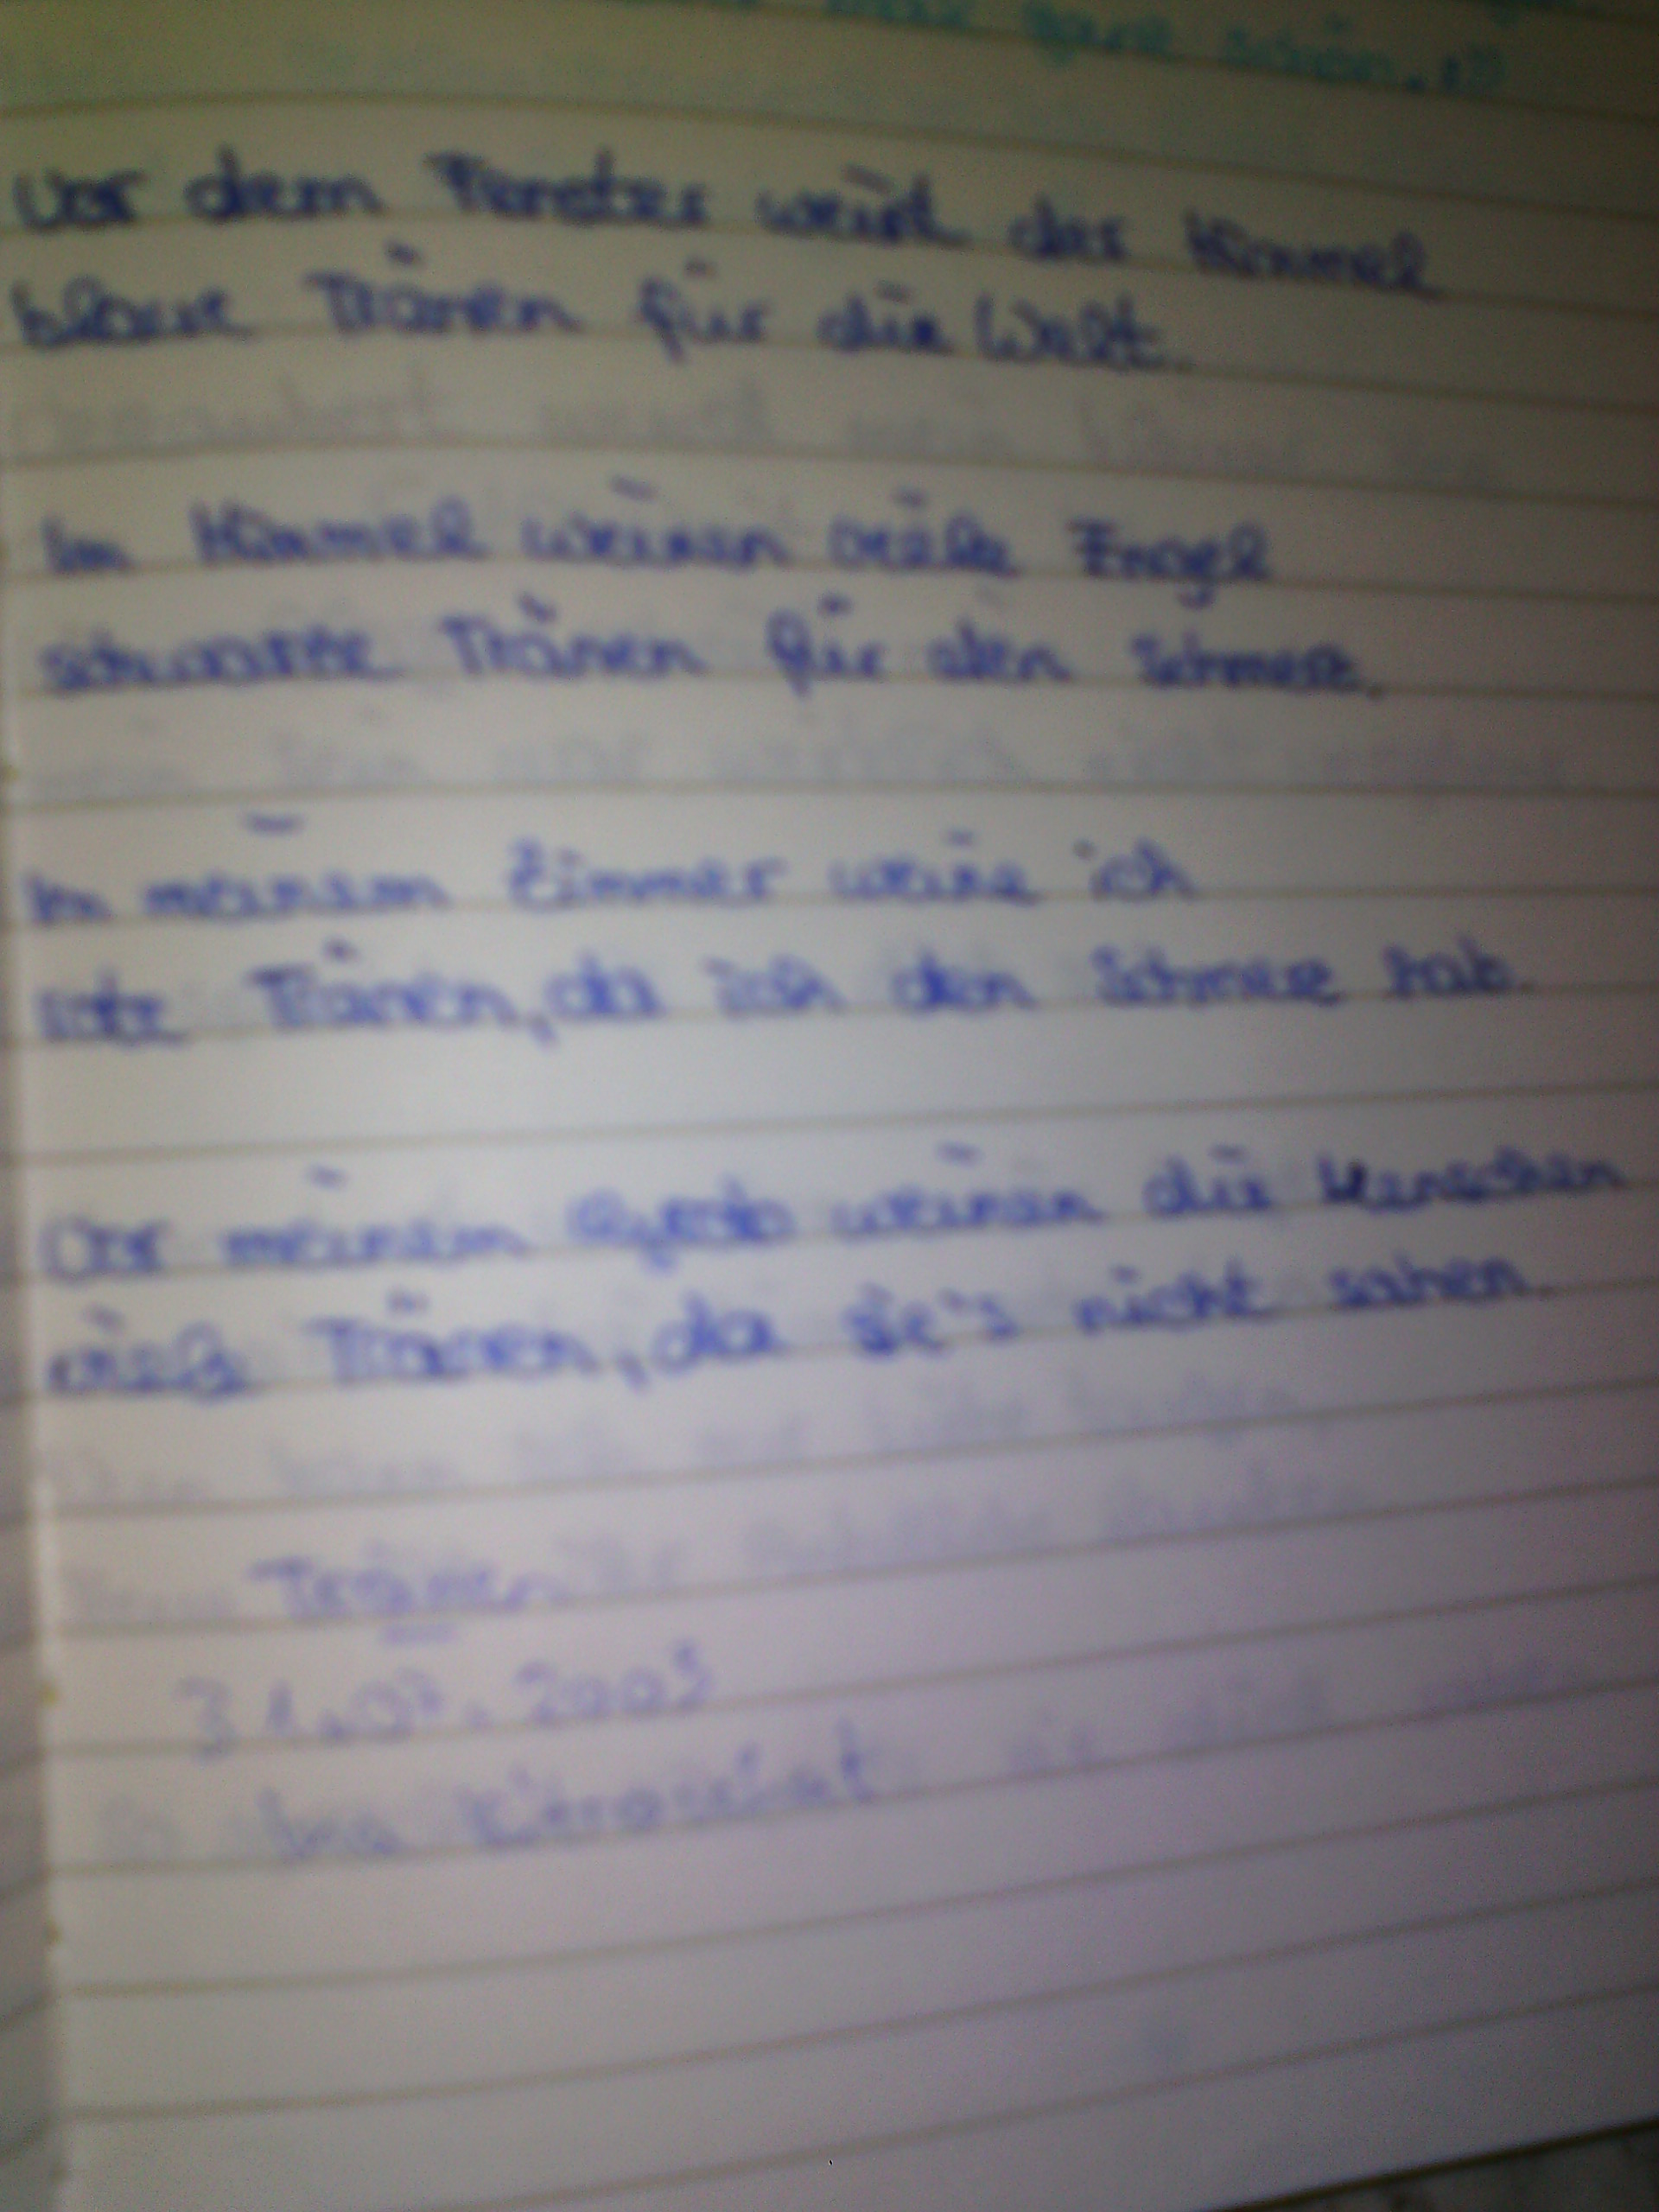 ganz schön.
Vor dem Fenster weint der Himmel
blaue Tränen für die Welt.
Im Himmel weinen viele Engel
schwarze Tränen für den Schmerz.
In meinem Zimmer weine ich
rote Tränen, da ich den Schmerz hab.
Vor meinem Grab weinen die Menschen
viele Tränen, da sie's nicht sahen.
Tränen
31.07.2005